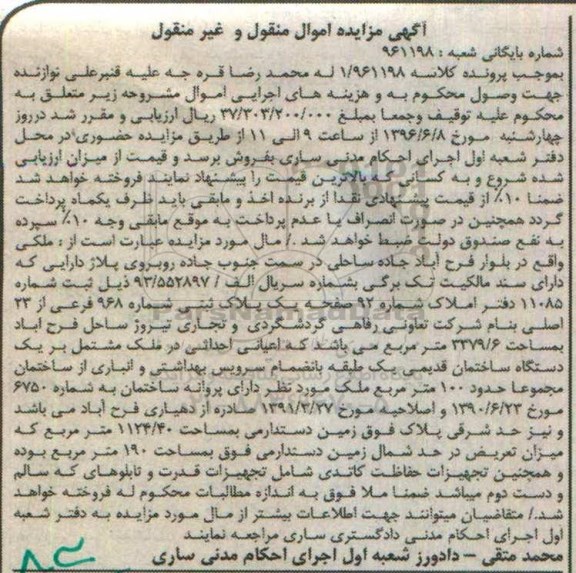 آگهی مزایده اموال منقول و غیر منقول
شماره بایگانی شعبه : ۹۶۱۱۹۸
بموجب پرونده کلاسه ۱/۹۶۱۱۹۸ له محمد رضا قره جه علیه قنبرعلی نوازنده
جهت وصول محکوم به و هزینه های اجرایی اموال مشروحه زیر متعلق به
محکوم علیه توقیف وجمعا بمبلغ ۳۷/۳۰۳/۲۰۰/۰۰۰ ریال ارزیابی و مقرر شد درروز
چهارشنبه مورخ ۱۳۹۶/۶/۸ از ساعت ۹ الی ۱۱ از طریق مزایده حضوری در محل
دفتر شعبه اول اجرای احکام مدنی ساری بفروش برسد و قیمت از میزان ارزیابی
شده شروع و به کسانی که بالاترین قیمت را پیشنهاد نمایند فروخته خواهد شد
ضمنا ۱۰٪ از قیمت پیشنهادی نقدا از برنده اخذ و مابقی باید ظرف یکماه پرداخت
گردد همچنین در صورت انصراف یا عدم پرداخت به موقع مابقی وجه ۱۰٪ سپرده
به نفع صندوق دولت ضبط خواهد شد ./ مال مورد مزایده عبارت است از : ملکی
واقع در بلوار فرح آباد جاده ساحلی در سمت جنوب جاده روبروی پلاژ دارایی که
دارای سند مالکیت تک برگی بشماره سریال الف / ۹۳/۵۵۲۸۹۷ ذیل ثبت شماره
۱۱۰۸۵ دفتر املاک شماره ۹۲ صفحه یک پلاک ثبتی شماره ۹۶۸ فرعی از ۲۳
اصلی بنام شرکت تعاونی رفاهی گردشگردی و تجاری تیروژ ساحل فرح آباد
بمساحت ۳۳۷۹/۶ متر مربع می باشد که اعیانی احداثی در ملک مشتمل بر یک
دستگاه ساختمان قدیمی یک طبقه بانضمام سرویس بهداشتی و انباری از ساختمان
مجموعا حدود ۱۰۰ متر مربع ملک مورد نظر دارای پروانه ساختمان به شماره ۶۷۵۰
مورخ ۱۳۹۰/۶/۲۳ و اصلاحیه مورخ ۱۳۹۱/۳/۲۷ صادره از دهیاری فرح آباد می باشد
و نیز حد شرقی پلاک فوق زمین دستدارمی بمساحت ۱۱۲۴/۴۰ متر مربع که
میزان تعریض در حد شمال زمین دستدارمی فوق بمساحت ۱۹۰ متر مربع بوده
و همچنین تجهیزات حفاظت کاتدی شامل تجهیزات قدرت و تابلوهای که سالم
و دست دوم میباشد ضمنا ملا فوق به اندازه مطالبات محکوم له فروخته خواهد
شد./ متقاضیان میتوانند جهت اطلاعات بیشتر از مال مورد مزایده به دفتر شعبه
اول اجرای احکام مدنی دادگستری ساری مراجعه نمایند
محمد متقی – دادورز شعبه اول اجرای احکام مدنی ساری
ParsNamadData